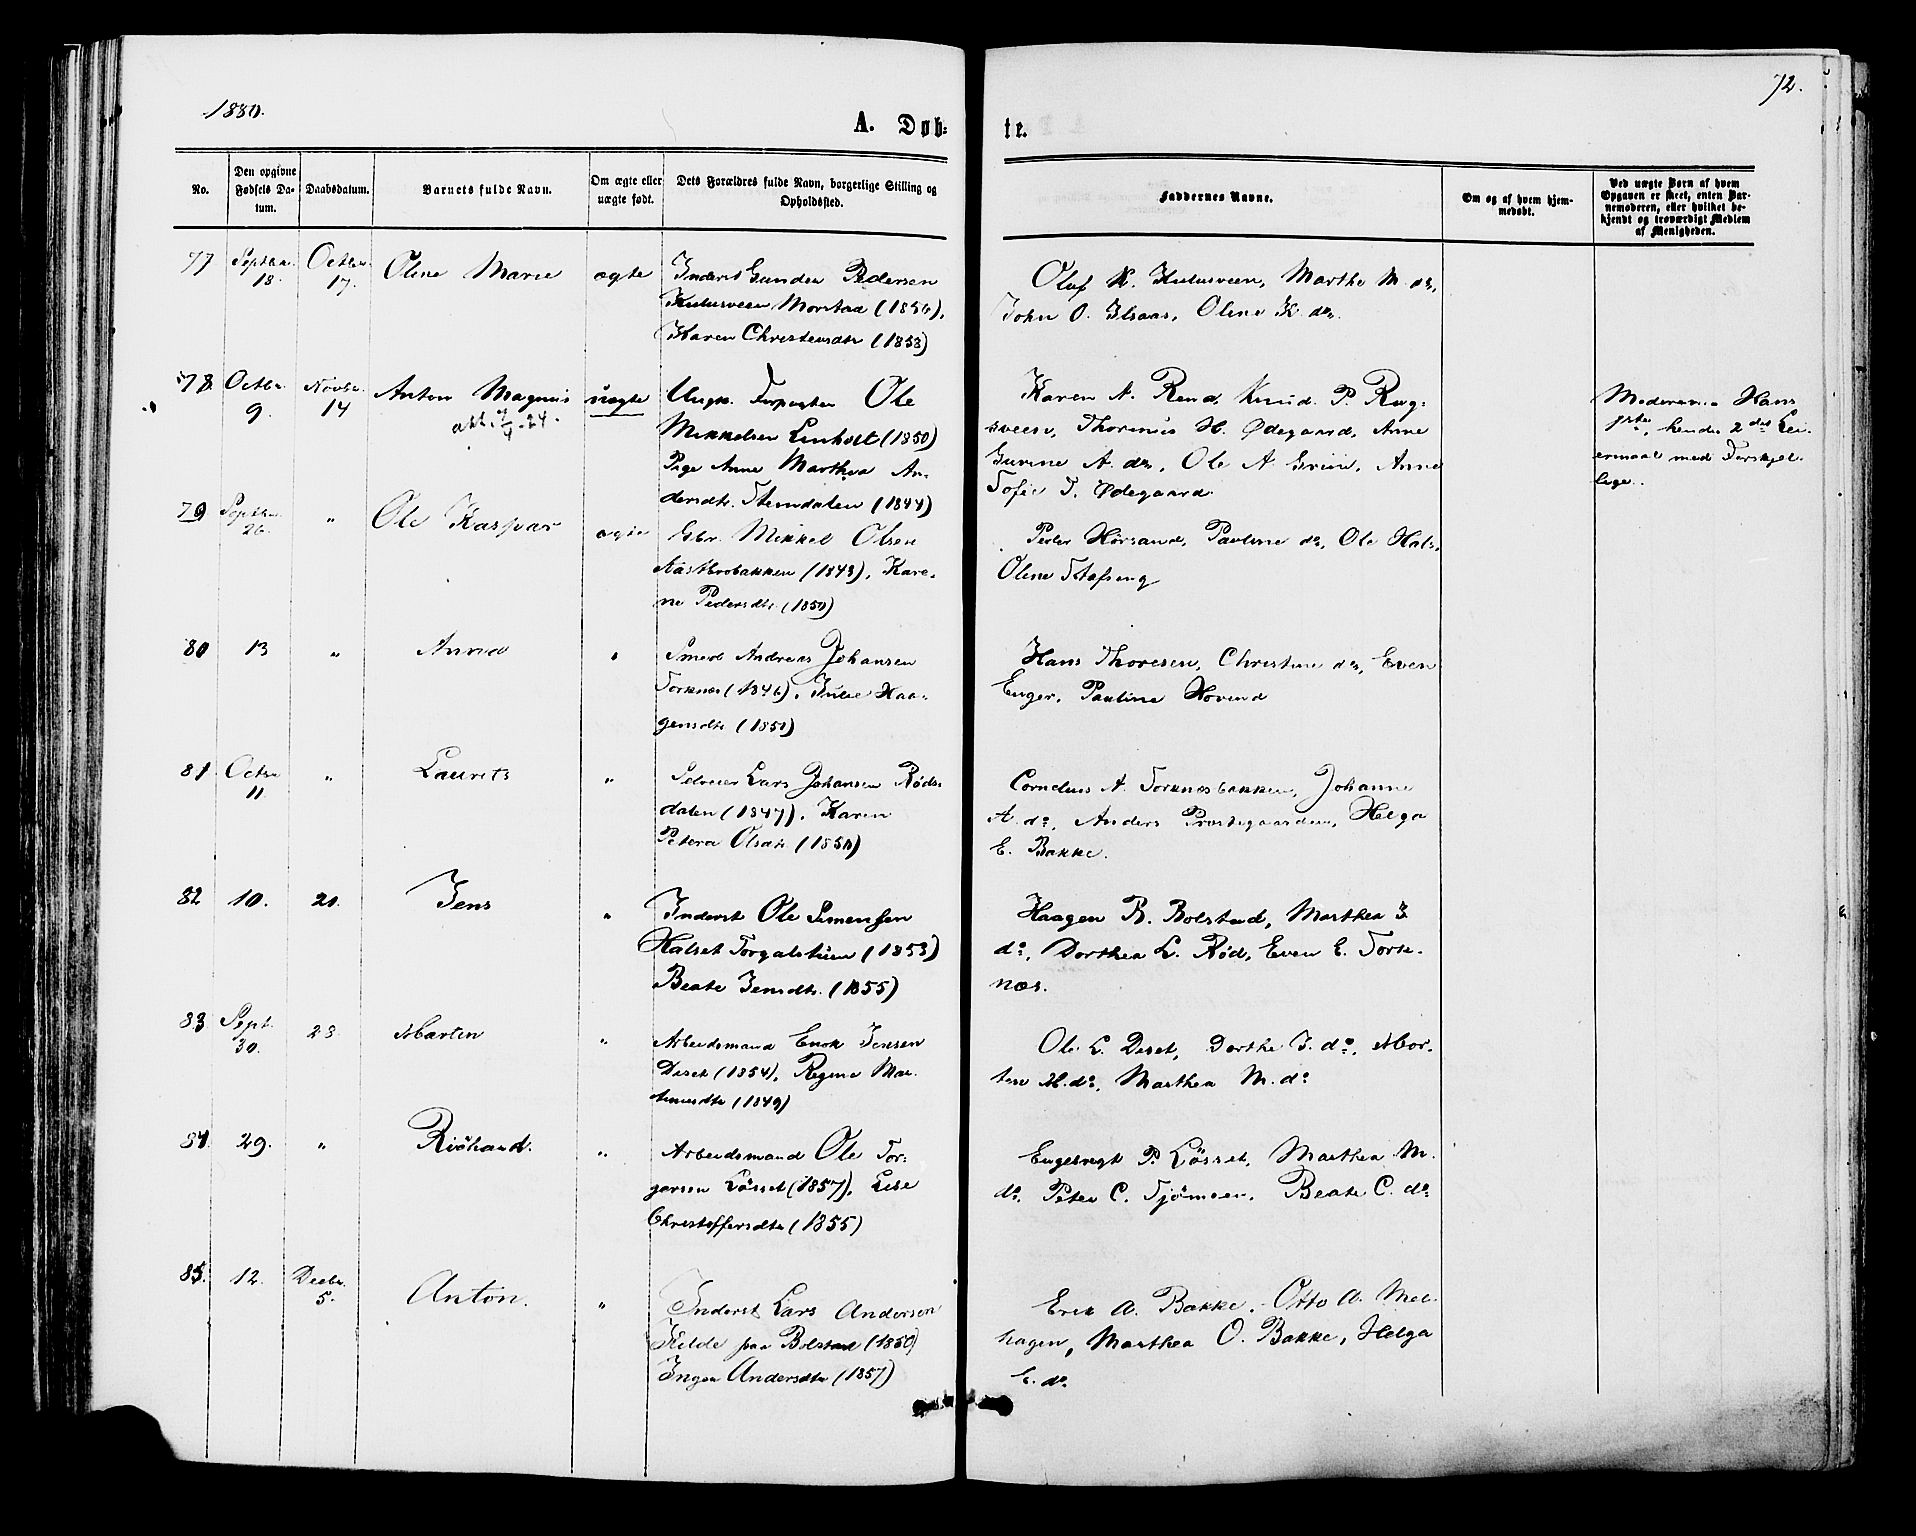 1880.
72.
A. Døb-
te.
No.
Den opgivne Fødsels Da-tum.
Daabsdatum.
Barnets fulde Navn.
Om ægte eller uægte født.
Dets Forældres fulde Navn, borgerlige Stilling og Opholdsted.
Faddernes Navne.
Om og af hvem hjem-medøbt.
Ved uægte Børn af hvem Opgaven er skeet, enten Bar-nemoderen, eller hvilket be-kjendt og troværdigt Medlem af Menigheden.
77 Septbr. 18. Octbr. 17. Oline Marie ægte
Inderst Gunder Pedersen
Morstad (1856),
Karen Christensdtr (1858)
Oluf K. Marthe M. do,
John O. Olene K. do.
78. Octbr. 9. Novbr. 14 Anton Magnus uægte
att. 7/4-24.
Ungk. Ole
Mikkelsen Linholt (1850)
Pige Anne Marthea An-
dersdtr. (1844)
Karen A. Knud P. Rug-
sveen, Thorinus H. Ødegaard, Anne
Gurine A. do, Ole A. Anne
Sofie T. Ødegaard.
Moderen. Hans
1ste, hendes 2det Lei-
ermaal med Forskjel-
lige.
79 Septbr. 26. " Ole Kaspar ægte
Gbr. Mikkel Olsen
(1848), Kare-
ne Pedersdtr. (1850)
Peder Pauline do, Ole Hals.
Olene Stafseng
80 13 " Anna "
Smed Andreas Johansen
Torknes (1846), Julie Haa-
gensdtr (1850)
Hans Thoresen, Christine do, Even
Enger, Pauline
81. Octbr 11. " Laurits "
Selveier Lars Johansen Røds-
dalen (1847), Karen
Petera Olsdtr. (1850)
Cornelius A. Torknesbakken, Johanne
A. do, Anders Præstegaarden, Helga
E. Bakke.
82 10. 21. Jens "
Inderst Ole Simensen
Halset (1853)
Beate Jensdtr. (1855)
Haagen B. Bolstad, Marthea J
do, Dorthea L. Rød, Even E. Tork-
nes.
83 Sept. 30. 28. Morten "
Arbeidsmand Enok Jensen
Deset (1854), Regine Mar-
tinusdtr (1849)
Ole L. Deset, Dorthe J. do, Mor-
ten M. do, Marthea M. do
84. 29. " Richard. "
Arbeidsmand Ole Tor-
gersen Løsset (1857), Lise
Christoffersdtr (1855)
Engebregt P. Løsset, Marthea M.
do, Peter C. Tjømoen, Beate C. do
85. 12. Decbr. 5. Anton. "
Inderst Lars Andersen
Kilde paa Bolstad (1850)
Inger Andersdtr (1857)
Erik A. Bakke, Otto A. Mel-
hagen, Marthea O. Bakke, Helga
E. do